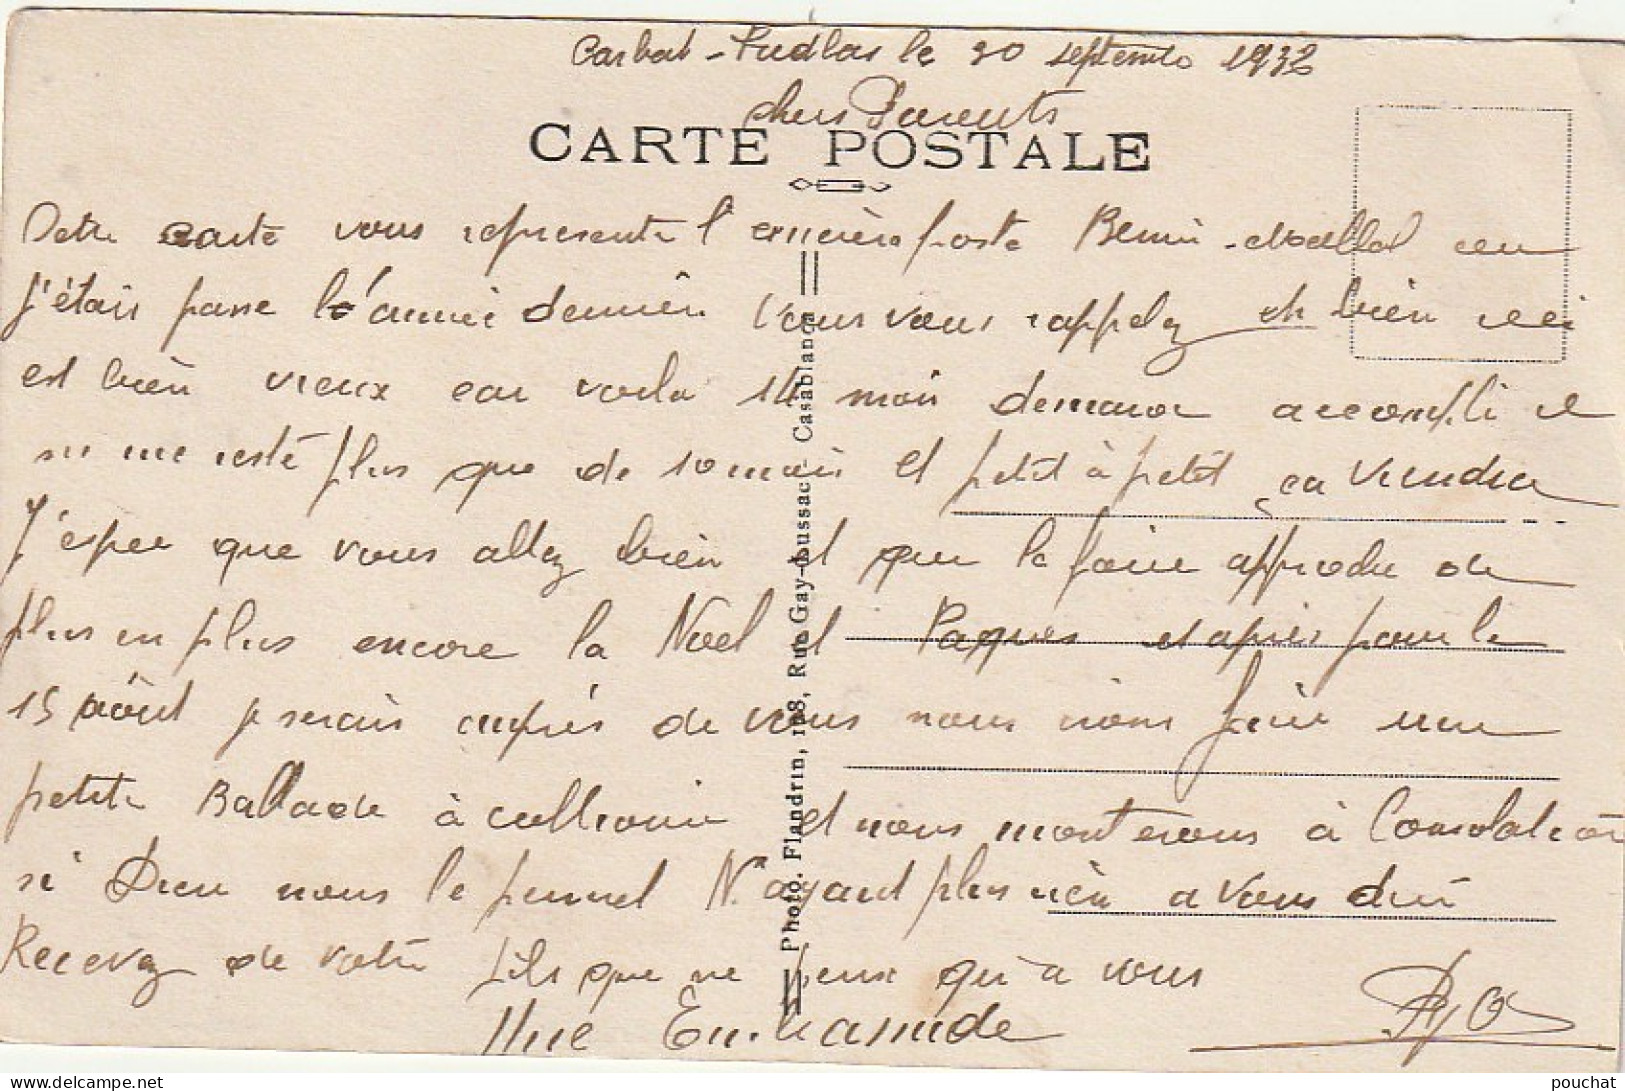 le 30 septembre 1932
chers Parents
CARTE POSTALE
Cette carte vous represente l' poste Benni- ou
j'étais passé l'année dernière vous vous rappelez eh bien
est bien vieux car voila 14 mois demain accompli il
ne me reste plus que de 10 mois et petit à petit ça viendra
J'espere que vous allez bien et que la foire approche de
plus en plus encore la Noel et Paques et après pour le
15 août je serais auprès de vous nous irons faire une
petite Ballade à collioure et nous monterons à Consolation
si Dieu nous le permet N'ayant plus rien a vous dire
Recevez de votre fils que ne pense qu'a vous
Une Embrassade
Photo. Flandrin, 128, Rue Gay-Loussac - Casablanca
pouchat